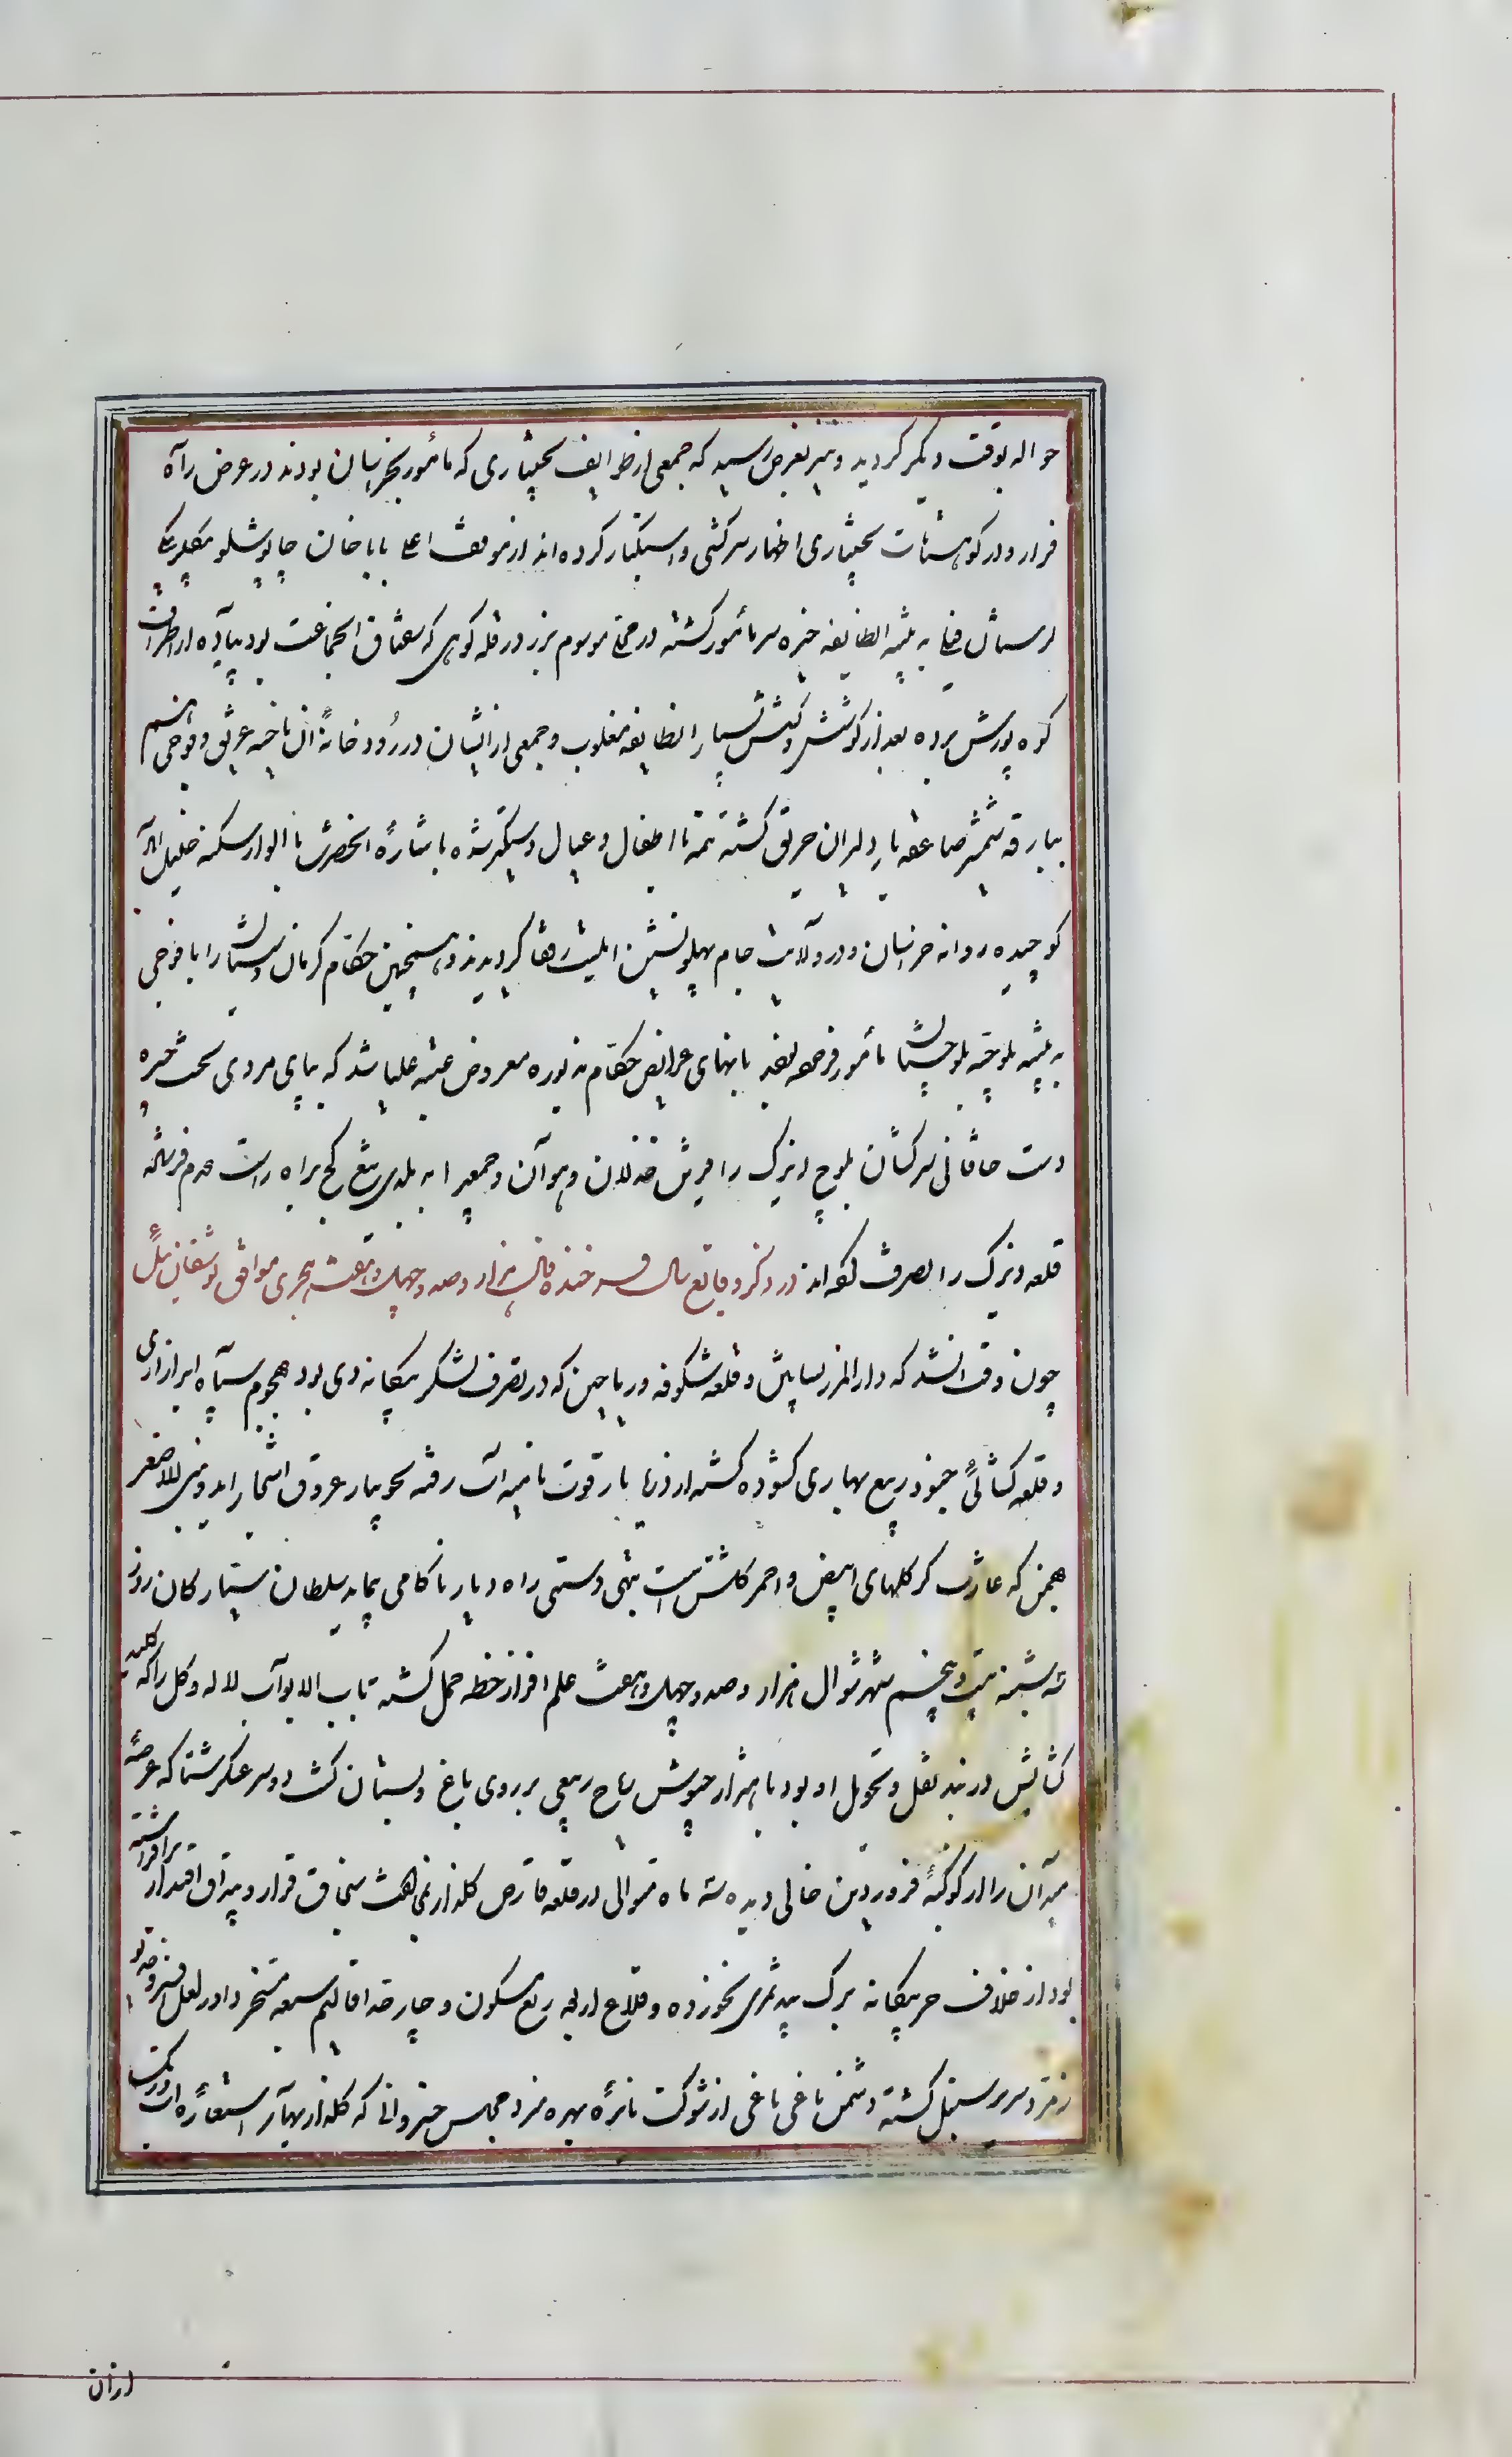 حواله بوقت دیگر گردید و نیز بعرض رسید که جمعی از طوایف بختیاری که مأمور بخراسان بودند در عرض راه
فرار و در کوهستانات بختیاری اظهار سرکشی و استکبار کرده‌اند از موقف اعلی باباخان چاپوشلو بیگلربیگی
لرستان فیلی به تنبیه الطایفه خیره سر مأمور گشته در محل موسوم بزز در قله کوهی که سقناق آنجماعت بود پیاده از اطراف
کوه یورش برده بعد از کوشش و کشش بسیار الطایفه مغلوب و جمعی از ایشان در رودخانهٔ آن ناحیه غریق و فوجی هم
ببارقه شمشیر صاعقه بار دلیران حریق گشته تتمه با اطفال و عیال دستگیر شده باشارهٔ آنحضرت با الوار سکنه خلیل آباد
کوچیده روانه خراسان و در ولایت جام پهلونشین ایلیت رفقا گردیدند و همچنین حکام کرمان و سیستان را با فوجی
به تنبیه بلوچیه بلوچستان مأمور فرموده بودند بانهای عرایض حکام مزبوره معروض عتبه علیا شد که بپای مردی بخت خیره
دست خاقانی سرکشان بلوچ ویزک را قرین خذلان و هوان و جمعی را به بلدی تیغ کج براه راست عدم فرستاده
قلعه ویزک را تصرف نموده‌اند در ذکر وقایع سال فرخنده فال هزار و صد و چهل و هفت هجری موافق توشقان ئیل
چون وقت آن شد که دارالمرز بساتین و قلعه شکوفه و ریاحین که در تصرف لشکر بیگانه دی بود بهجوم سپاه ابر آزاری
و قلعه گشائی جنود ربیع بهاری گشوده گشته از دریا بار قوت نامیه آب رفته بجویبار عروق اشجار آید و بنی الاصفر
بهمن که غارتگر گلهای ابیض و احمر گلشن است بتهی دستی راه دیار ناکامی پیماید سلطان سیارگان روز
سه شنبه بیست و پنجم شهر شوال هزار و صد و چهل و هفت علم افراز خطه حمل گشته باب الابواب لاله و گل را که کلید
گشایش دربند نقل و تحویل او بود با هزار جوش ریاح ربیعی بر روی باغ و بستان گشود و سرعسکر شتا که عرصهٔ
میدان را از کوکبهٔ فروردین خالی دیده سه ماه متوالی در قلعه قارص گلزار بنی هشت سنجاق قرار و بیداق اقتدار برافراشته
بود از خلاف حر بیگانه برگ بید ثمری نخورده و قلاع اربعه ربع مسکون و چار حد اقالیم سبعه مسخر دادر لعل افسر و
زمرد سریر سنبل گشته دشمن باغی باغی از شوکت نایره بهره نبرد مجلس خسروانی که گلزار بهار استعاره رنگ
از آن